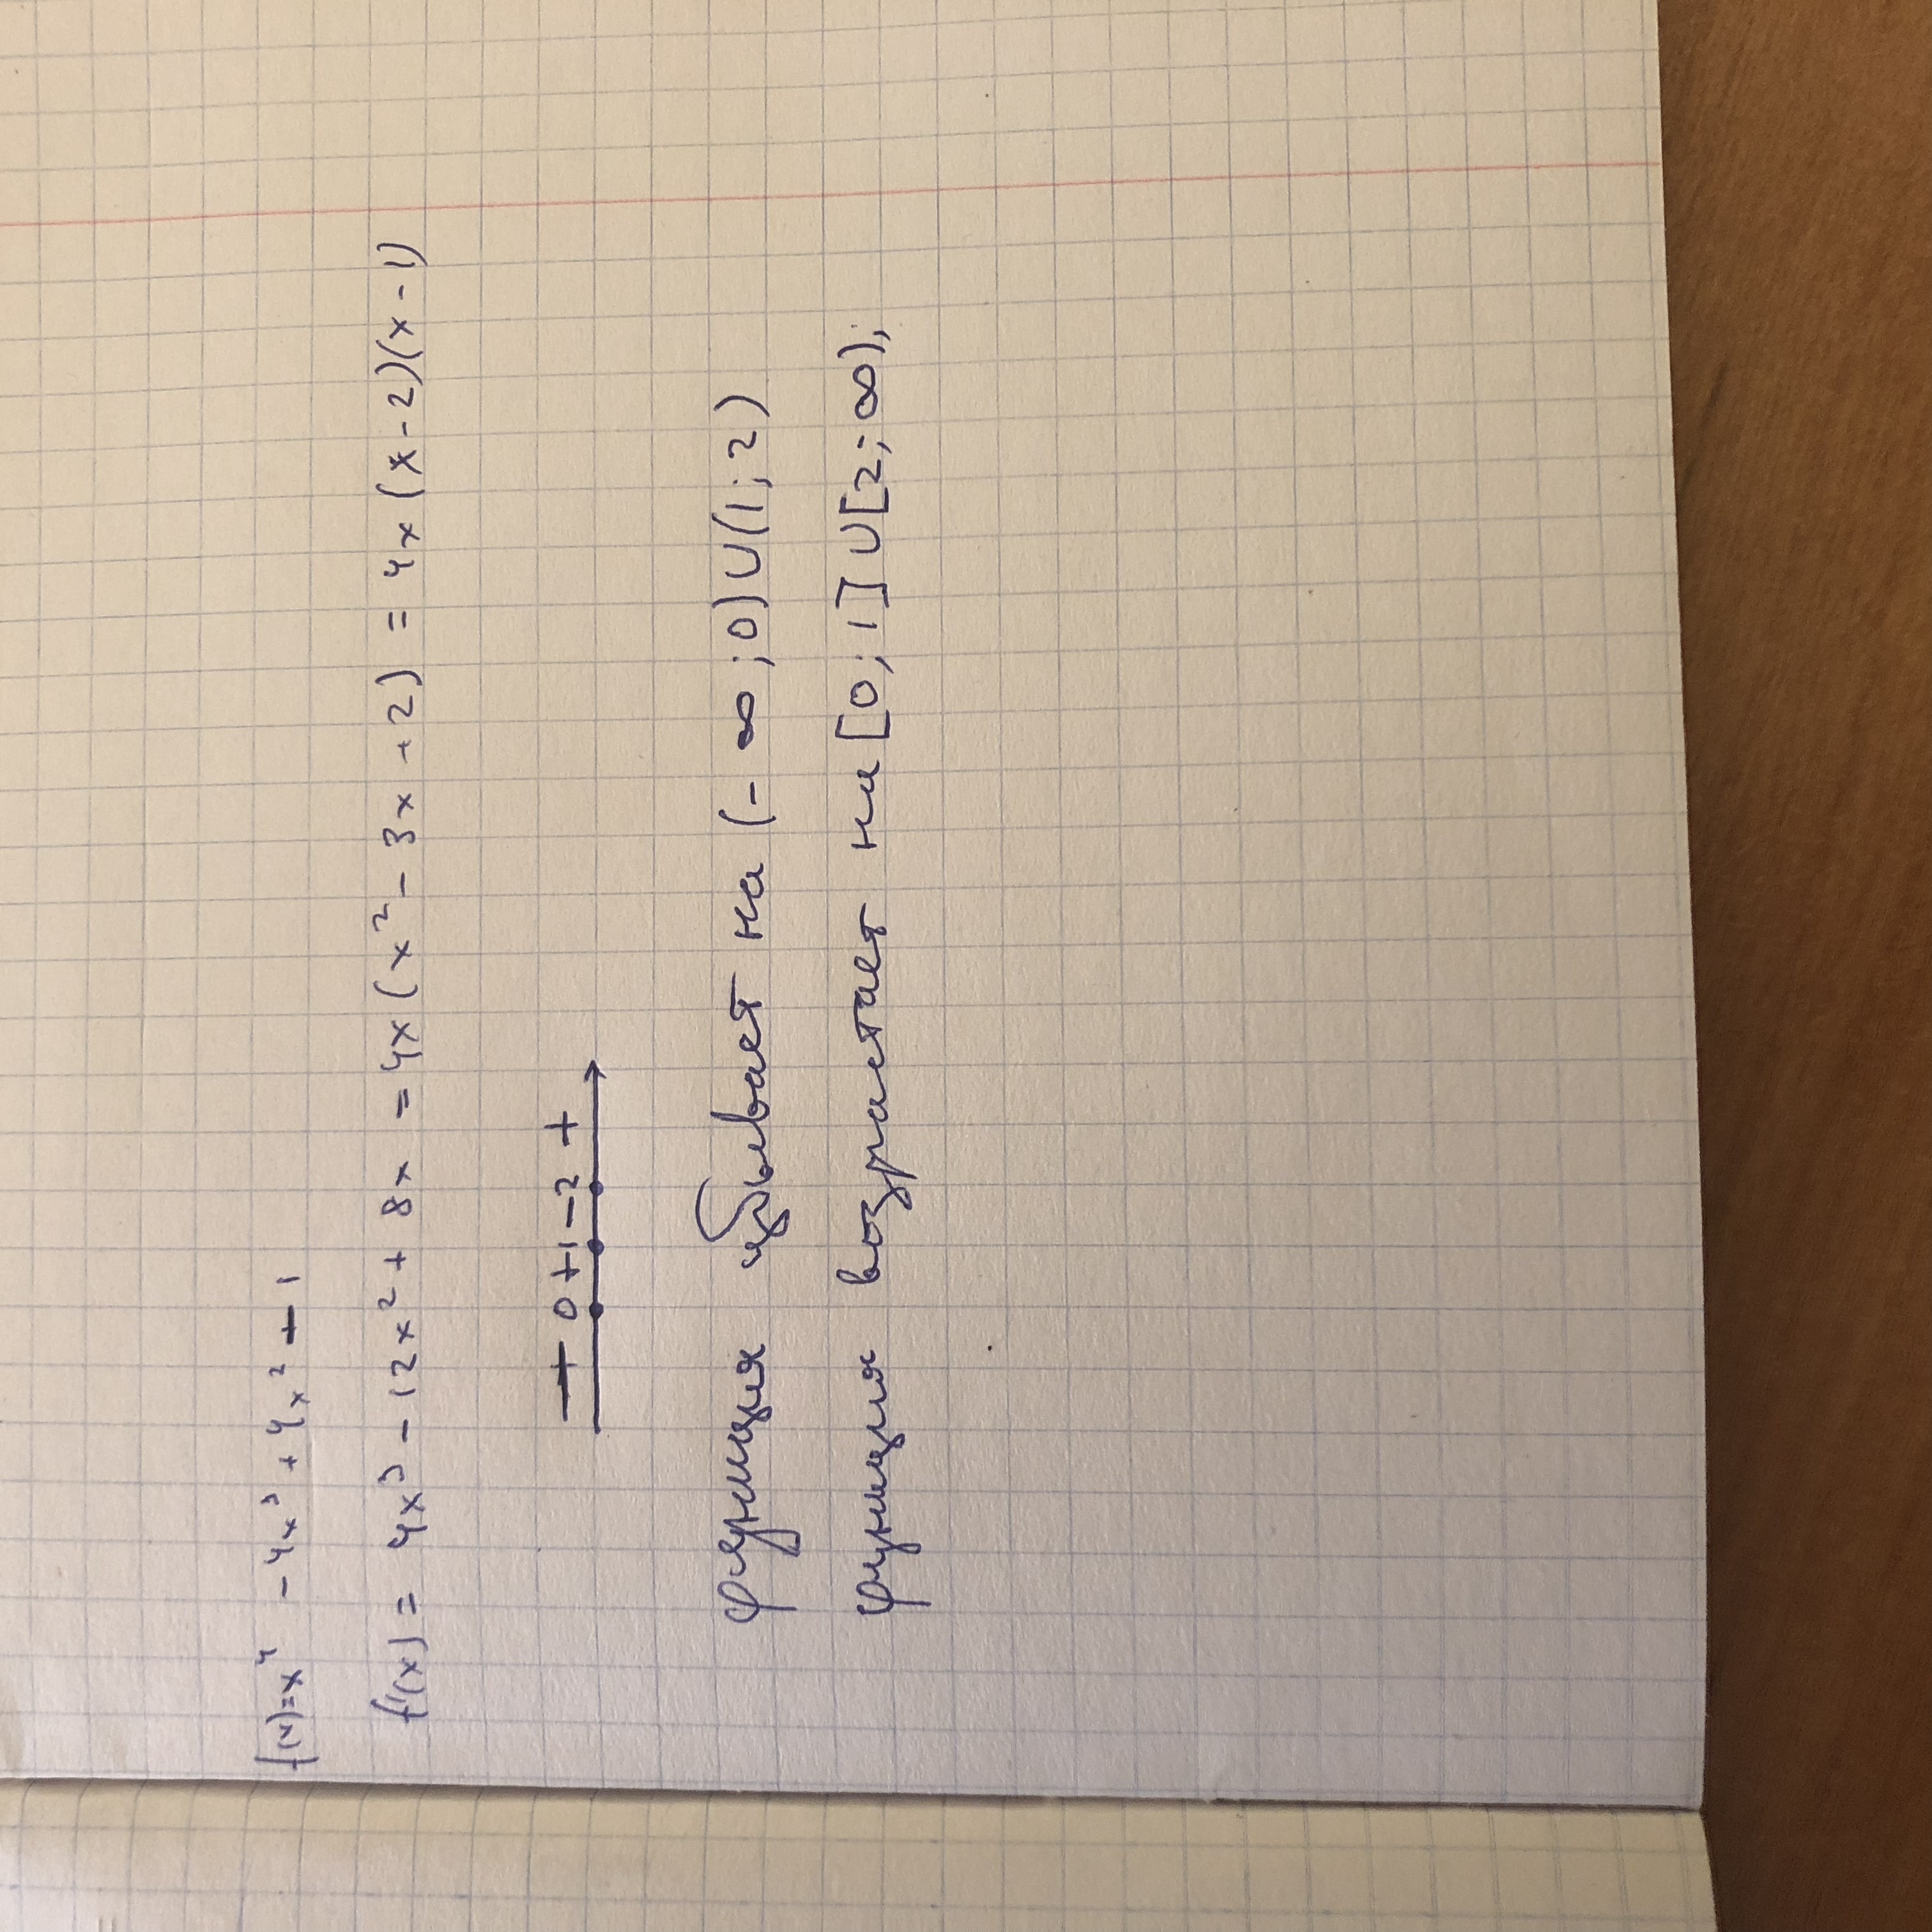 f(x)=x⁴ - 4x³ + 4x² + 1
f'(x) = 4x³ - 12x² + 8x = 4x(x² - 3x + 2) = 4x(x-2)(x-1)
+ 0 + 1 - 2 +
функция убывает на (-∞; 0)∪(1; 2)
функция возрастает на [0; 1]∪[2; ∞);